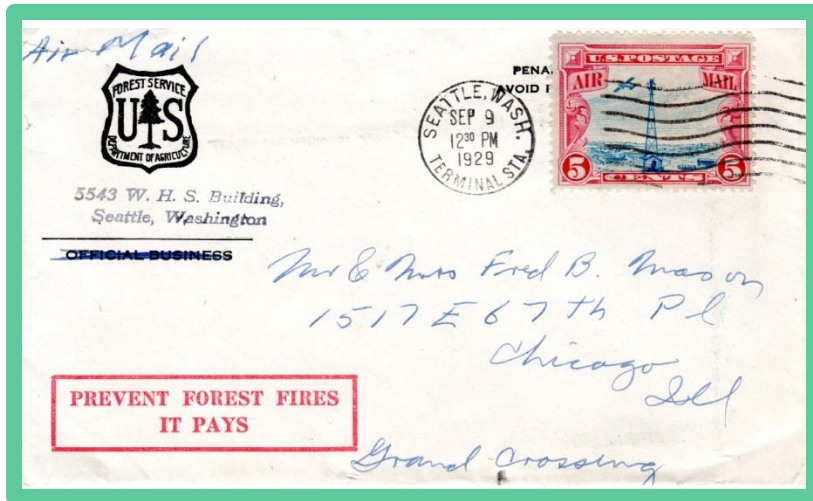 Air Mail
FOREST SERVICE
US
DEPARTMENT OF AGRICULTURE
5543 W. H. S. Building,
Seattle, Washington
OFFICIAL BUSINESS
PENA
AVOID P
SEATTLE, WASH.
SEP 9
12³⁰ PM
1929
TERMINAL STA.
U.S. POSTAGE
AIR MAIL
5 CENTS 5
Mr & Mrs Fred B. Mason
1517 E 67th Pl
Chicago
Ill
Grand Crossing
PREVENT FOREST FIRES
IT PAYS